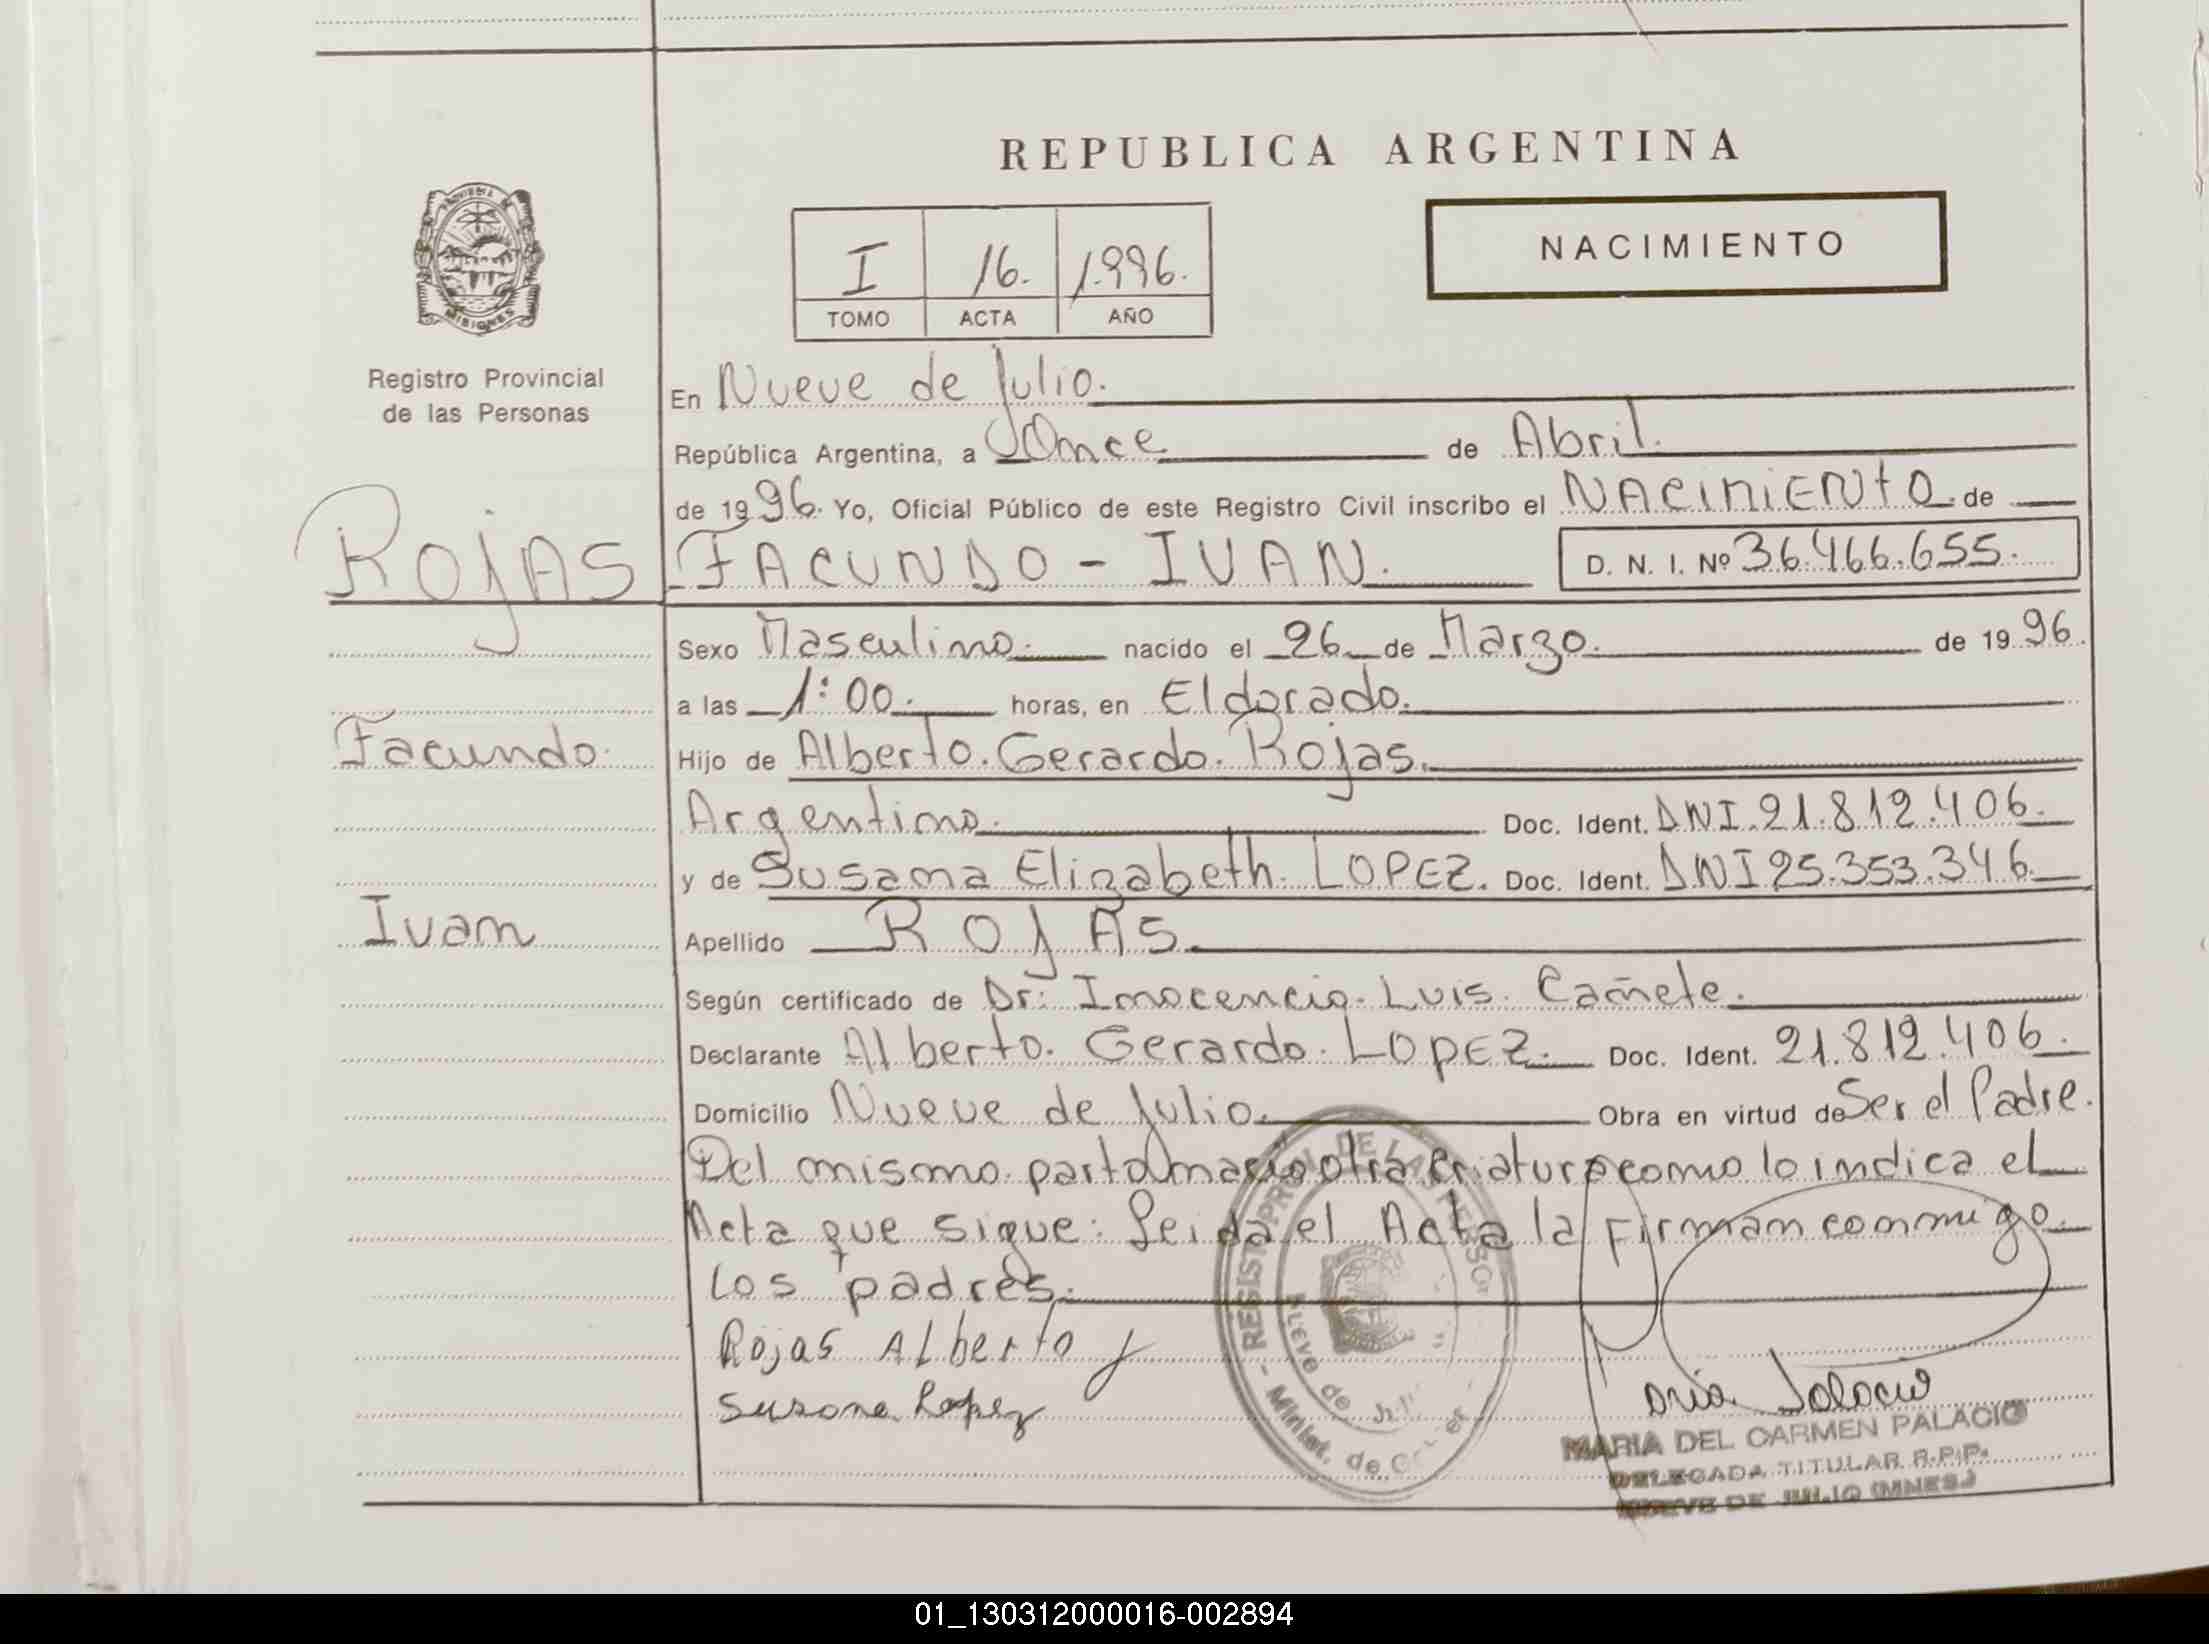 REPUBLICA ARGENTINA
NACIMIENTO
I 16. 1.996.
TOMO ACTA AÑO
PROVINCIA DE
MISIONES
Registro Provincial
de las Personas
En Nueve de Julio.
República Argentina, a Once de Abril.
de 1996. Yo, Oficial Público de este Registro Civil inscribo el NACIMIENTO de
ROJAS FACUNDO - IVAN. D. N. I. Nº 36.466.655.
Sexo Masculino. nacido el 26 de Marzo. de 1996.
a las 1:00. horas, en Eldorado.
Facundo Hijo de Alberto. Gerardo. Rojas.
Argentino. Doc. Ident. DNI.21.812.406.
y de Susana Elizabeth. LOPEZ. Doc. Ident. DNI 25.353.346.
Ivan Apellido ROJAS.
Según certificado de Dr: Inocencio. Luis. Cañete.
Declarante Alberto. Gerardo. LOPEZ. Doc. Ident. 21.812.406.
Domicilio Nueve de Julio. Obra en virtud de Ser el Padre.
Del mismo parto nacio otra criatura como lo indica el
Acta que sigue: Leida el Acta la firman conmigo
los padres.
Rojas Alberto
Susana Lopez
REGIST. PROV. DE LAS PERSO
Nueve de Juli
Minist. de
MARIA DEL CARMEN PALACIO
DELEGADA TITULAR R.P.P.
NUEVE DE JULIO (MNES.)
01_130312000016-002894